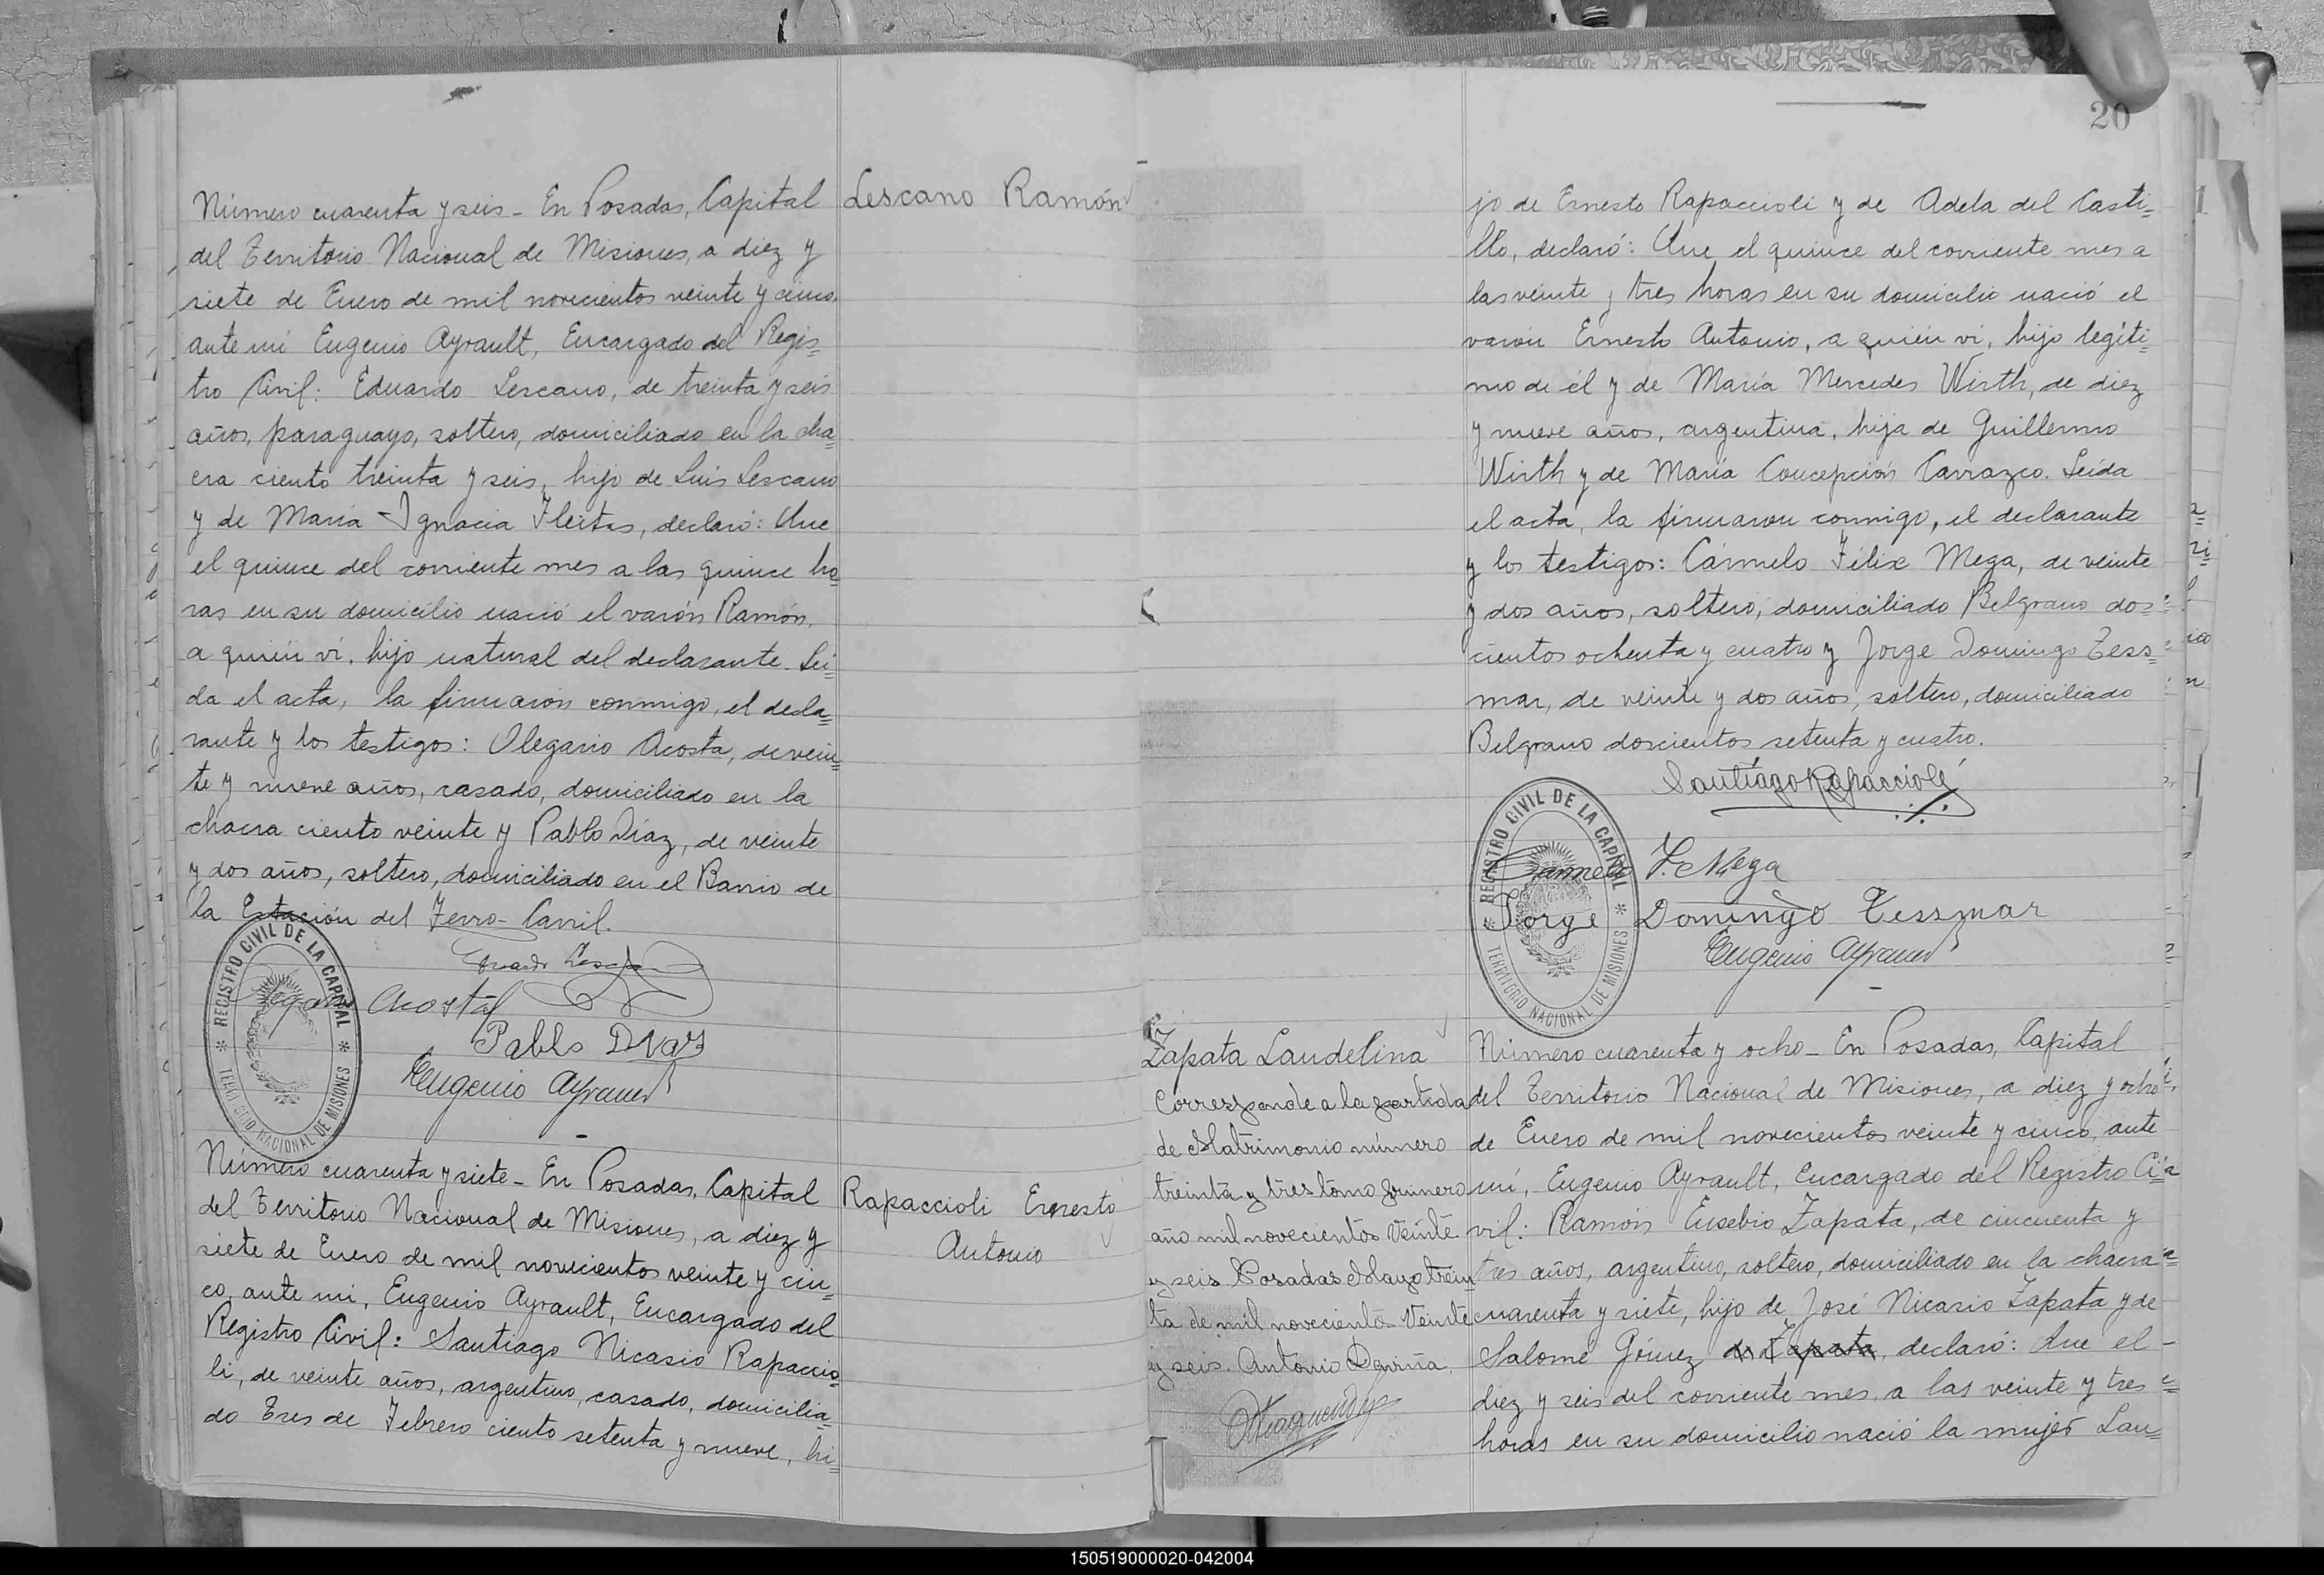 Lescano Ramón
Número cuarenta y seis - En Posadas, Capital
del Territorio Nacional de Misiones, a diez y
siete de Enero de mil novecientos veinte y cinco,
ante mi Eugenio Ayrault, Encargado del Regis=
tro Civil: Eduardo Lescano, de treinta y seis
años, paraguayo, soltero, domiciliado en la cha=
cra ciento treinta y seis, hijo de Luis Lescano
y de María Ignacia Fleitas, declaró: Que
el quince del corriente mes a las quince ho=
ras en su domicilio nació el varón Ramón,
a quién ví, hijo natural del declarante. Leí=
da el acta, la firmaron conmigo, el decla=
rante y los testigos: Olegario Acosta, de vein=
te y nueve años, casado, domiciliado en la
chacra ciento veinte y Pablo Díaz, de veinte
y dos años, soltero, domiciliado en el Barrio de
la Estación del Ferro-Carril.
Eduardo Lescano
Olegario Acosta
Pablo Diaz
Eugenio Ayrault
REGISTRO CIVIL DE LA CAPITAL
TERRITORIO NACIONAL DE MISIONES
Rapaccioli Ernesto
Antonio
Número cuarenta y siete - En Posadas, Capital
del Territorio Nacional de Misiones, a diez y
siete de Enero de mil novecientos veinte y cin=
co, ante mi, Eugenio Ayrault, Encargado del
Registro Civil: Santiago Nicasio Rapaccio=
li, de veinte años, argentino, casado, domicilia=
do Tres de Febrero ciento setenta y nueve, hi=
20
jo de Ernesto Rapaccioli y de Adela del Casti=
llo, declaró: Que el quince del corriente mes a
las veinte y tres horas en su domicilio nació el
varón Ernesto Antonio, a quién ví, hijo legíti=
mo de él y de María Mercedes Wirth, de diez
y nueve años, argentina, hija de Guillermo
Wirth y de María Concepción Carrazco. Leída
el acta, la firmaron conmigo, el declarante
y los testigos: Cármelo Félix Mega, de veinte
y dos años, soltero, domiciliado Belgrano dos=
cientos ochenta y cuatro y Jorge Domingo Tess=
mar, de veinte y dos años, soltero, domiciliado
Belgrano doscientos setenta y cuatro.
Santiago Rapaccioli
Carmelo F. Mega
Jorge Domingo Tessmar
Eugenio Ayrault
REGISTRO CIVIL DE LA CAPITAL
TERRITORIO NACIONAL DE MISIONES
Zapata Laudelina
Corresponde a la partida
de Matrimonio número
treinta y tres tomo primero
año mil novecientos veinte
y seis. Posadas Mayo trein
ta de mil novecientos veinte
y seis. Antonio
Número cuarenta y ocho - En Posadas, Capital
del Territorio Nacional de Misiones, a diez y ocho
de Enero de mil novecientos veinte y cinco, ante
mí, Eugenio Ayrault, Encargado del Registro Ci=
vil: Ramón Eusebio Zapata, de cincuenta y
tres años, argentino, soltero, domiciliado en la chacra
cuarenta y siete, hijo de José Nicasio Zapata y de
Salomé Gómez de Zapata, declaró: Que el -
diez y seis del corriente mes, a las veinte y tres
horas en su domicilio nació la mujer Lau=
150519000020-042004